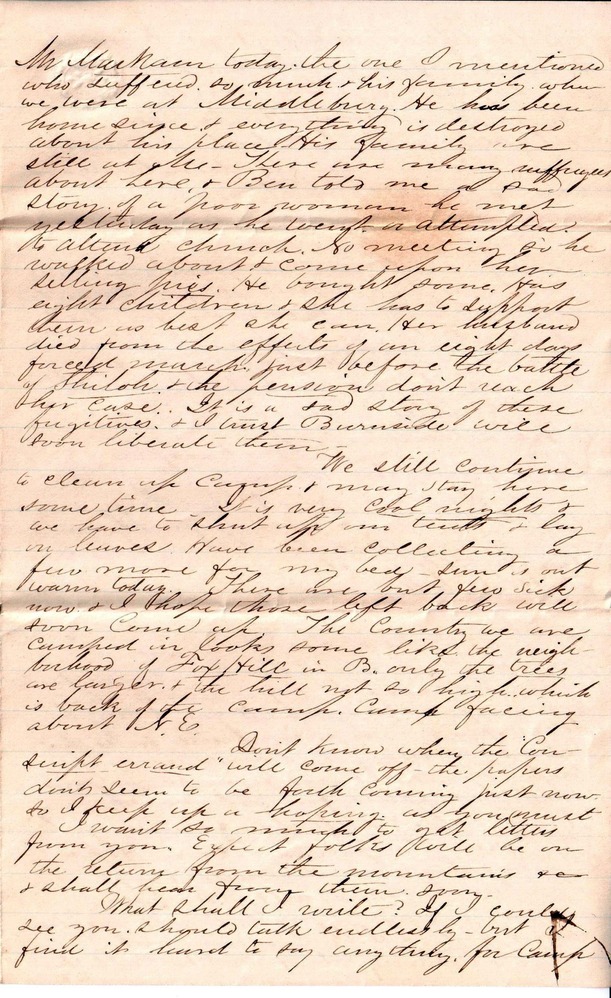 Mr Markam today. the one I mentioned
who suffered. so much & his family when
we were at Middlebury. He has been
home since & everything is destroyed
about his place. His family are
still at the – There are many suffugees
about here, & Ben told me a sad
story. of a poor woman he met
yesterday as he went or attempted.
to attend church. No meeting so he
walked about & come upon her
selling pies. He bought some. Has
eight children & she has to support
them as best she can. Her husband
died from the effects of an eight days
forced march. just before the battle
of Shiloh. & the pension don't reach
her case. It is a sad story of these
fugitives. & I trust Burnside will
soon liberate them –
We still continue
to clean up Camp & may stay here
some time – It is very cool nights &
we have to shut up our tents & lay
on leaves. Have been collecting a
few more for my bed – sun is out
warm today. There are but few sick
now & I hope those left back will
soon come up The Country we are
camped in looks some like the neigh-
borhood of Fox Hill in B. only the trees
are larger. & the hill not so high. which
is back of the camp. Camp facing
about N.E.
Don't know when the "Con-
script errand" will come off – the papers
don't seem to be forth coming just now.
so I keep up a hoping. as you must
I want so much to get letters
from you. Expect folks will be on
the return from the mountains &c
& shall hear from them. soon –
What shall I write? If I could
see you. should talk endlessly – but I
find it hard to say anything. for Camp